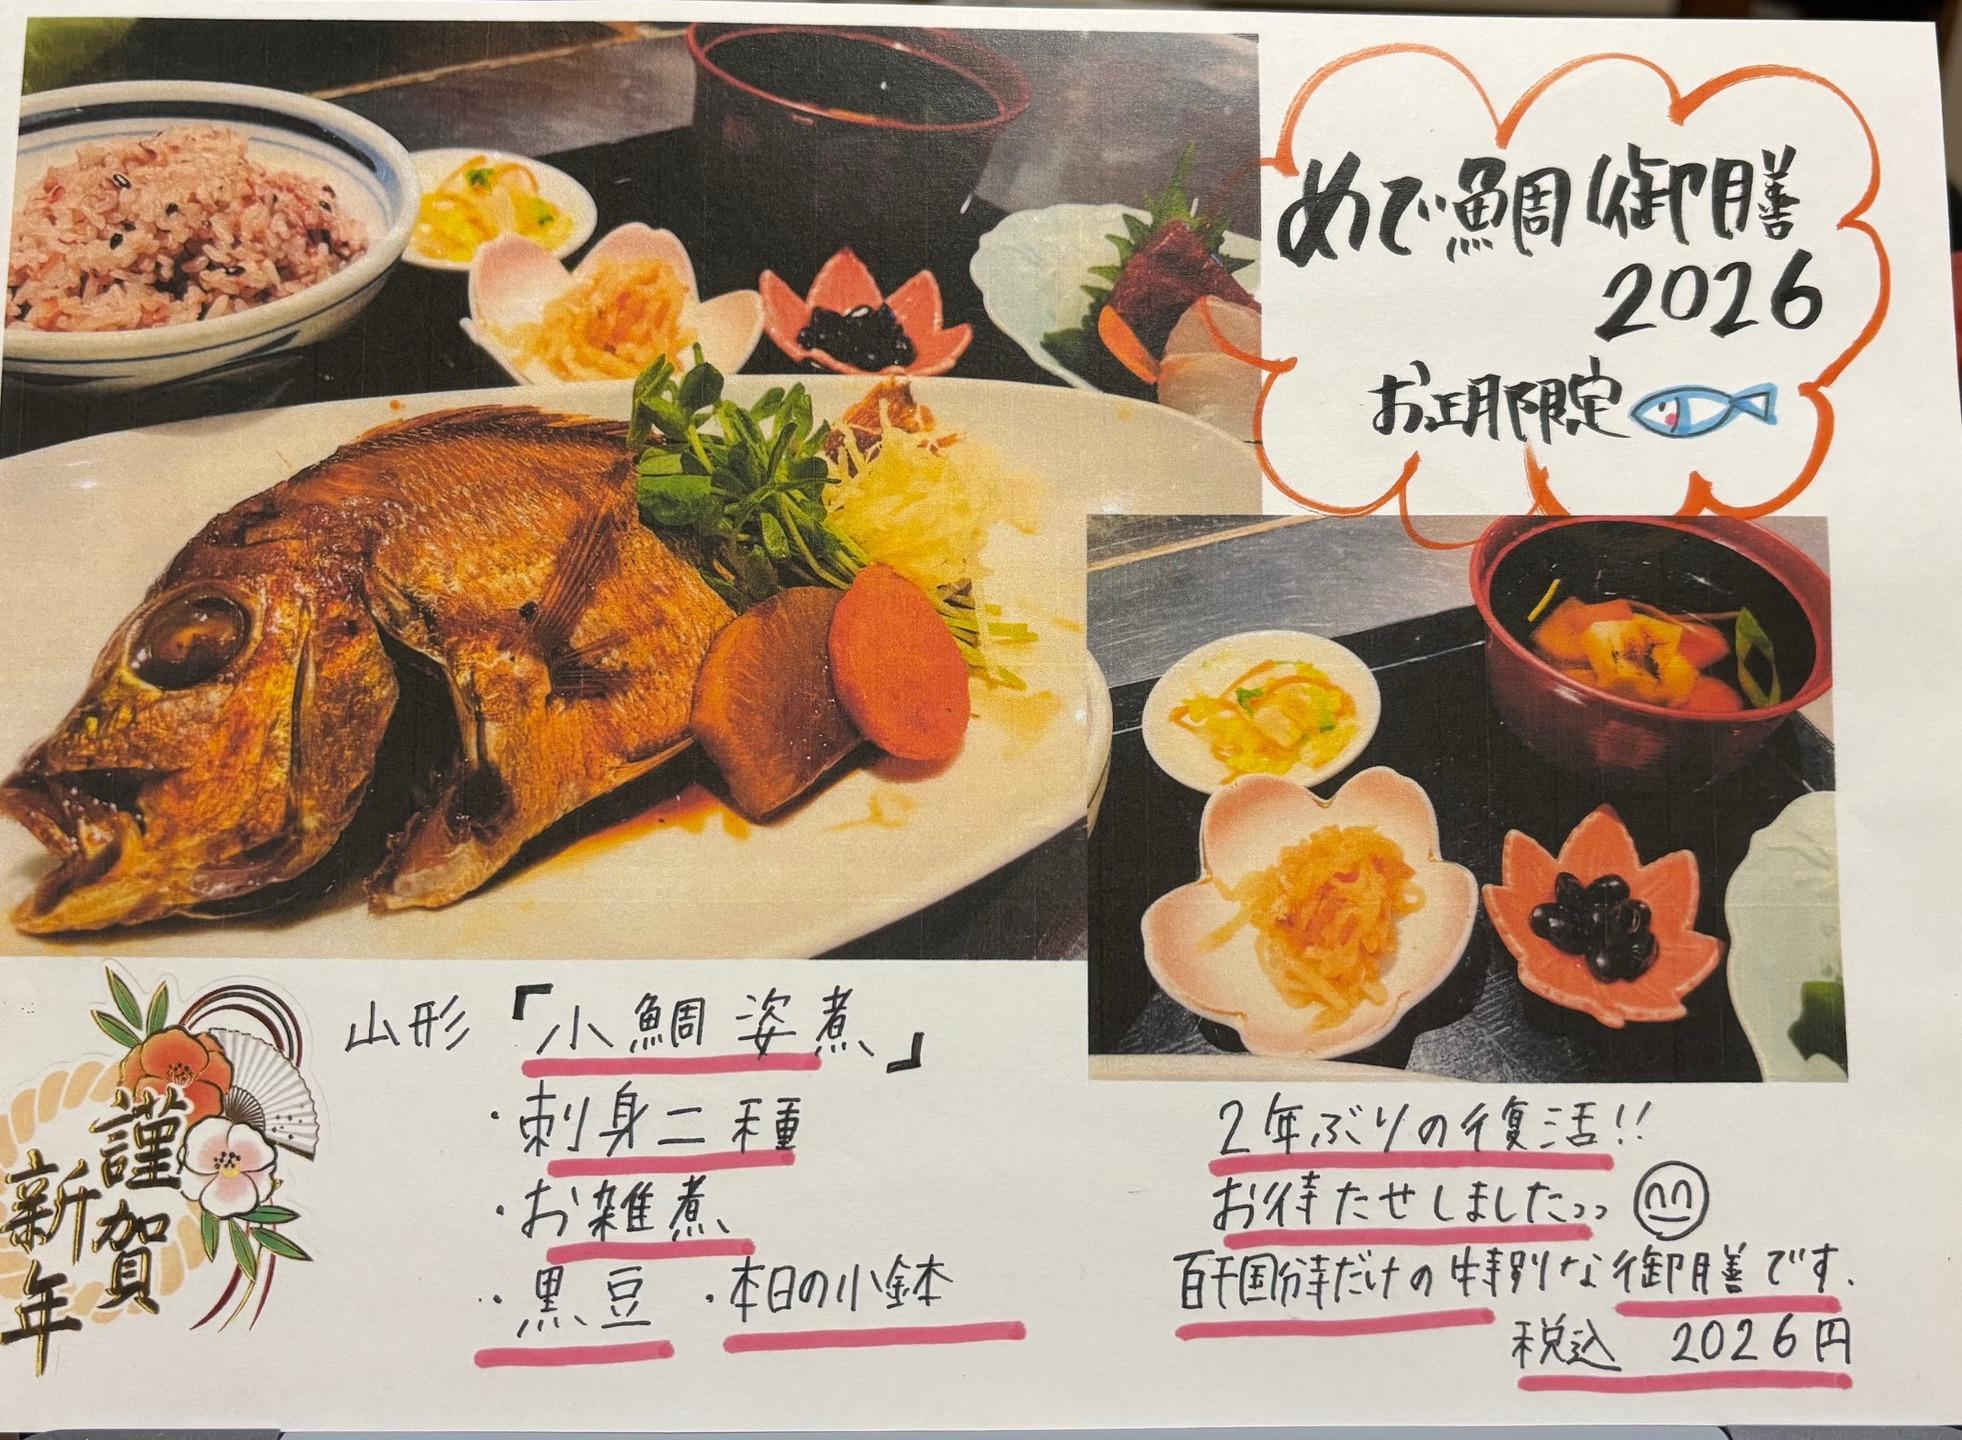 めで鯛御膳
2026
お正月限定
山形『小鯛姿煮』
・刺身二種
・お雑煮
・黒豆 ・本日の小鉢
謹賀
新年
2年ぶりの復活!!
お待たせしました
の特別な御膳です.
税込 2026円